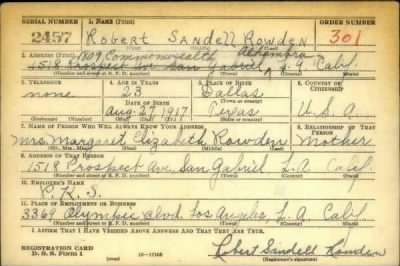 SERIAL NUMBER 1. NAME (Print) ORDER NUMBER
2457 Robert Sandell Rowden 301
(First) (Middle) (Last)
1809 Commonwealth Alhambra
2. ADDRESS (Print)
1518 Prospect Ave San Gabriel L.A. Calif.
(Number and street or R. F. D. number) (Town) (County) (State)
3. TELEPHONE 4. AGE IN YEARS 5. PLACE OF BIRTH 6. COUNTRY OF CITIZENSHIP
none 23 Dallas
DATE OF BIRTH (Town or county)
Aug. 27 1917 Texas U.S.A.
(Exchange) (Number) (Mo.) (Day) (Yr.) (State or country)
7. NAME OF PERSON WHO WILL ALWAYS KNOW YOUR ADDRESS 8. RELATIONSHIP OF THAT PERSON
Mrs. Margaret Elizabeth Rowden Mother
(Mr., Mrs., Miss) (First) (Middle) (Last)
9. ADDRESS OF THAT PERSON
1518 Prospect Ave. San Gabriel L.A. Calif
(Number and street or R. F. D. number) (Town) (County) (State)
10. EMPLOYER'S NAME
P.K.S.
11. PLACE OF EMPLOYMENT OR BUSINESS
3369 Olympic Blvd. Los Angeles, L.A. Calif.
(Number and street or R. F. D. number) (Town) (County) (State)
I AFFIRM THAT I HAVE VERIFIED ABOVE ANSWERS AND THAT THEY ARE TRUE.
REGISTRATION CARD
D. S. S. Form 1 (over) 16—17105 Robert Sandell Rowden
(Registrant's signature)